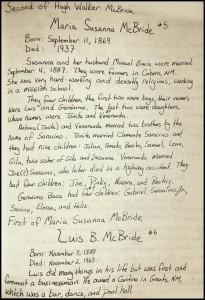 Second of Hugh Walker McBride
Maria Susanna McBride #5
Born: September 11, 1869
Died: 1937
Susanna and her husband Manuel Baca were married
September 11, 1887. They were farmers in Cubero, NM.
She was very hard working and deeply religious, working
in a mission school.
They four children the first two were boys, their names
were Luis and Geronimo. The last two were daughters,
whose names were Tonita and Venenuda.
(Tonita) and Venenuda married two brothers by the
name of Sanchez. Tonita married Clemente Sanchez and
they had nine children: Julian, Amado, Benito, Samuel, Leno,
Gila, twin sister of Gila and Susanna. Venenuda married
Joe(2) Sanchez, who later died in a highway, accident. They
had four children: Joe, Pinky, Naomi, and Beatriz.
Geronimo Baca had five children: Gabriel, Geronimo Jr,
Susano, Eloisa, and Felix.
First of Maria Susanna McBride
Luis B. McBride #6
Born: November 3, 1888
Died: November 2, 1963
Luis did many things in his life but was first and
foremost a businessman. He owned a Cantina in Grants, NM,
which was a bar, dance, and pool hall.